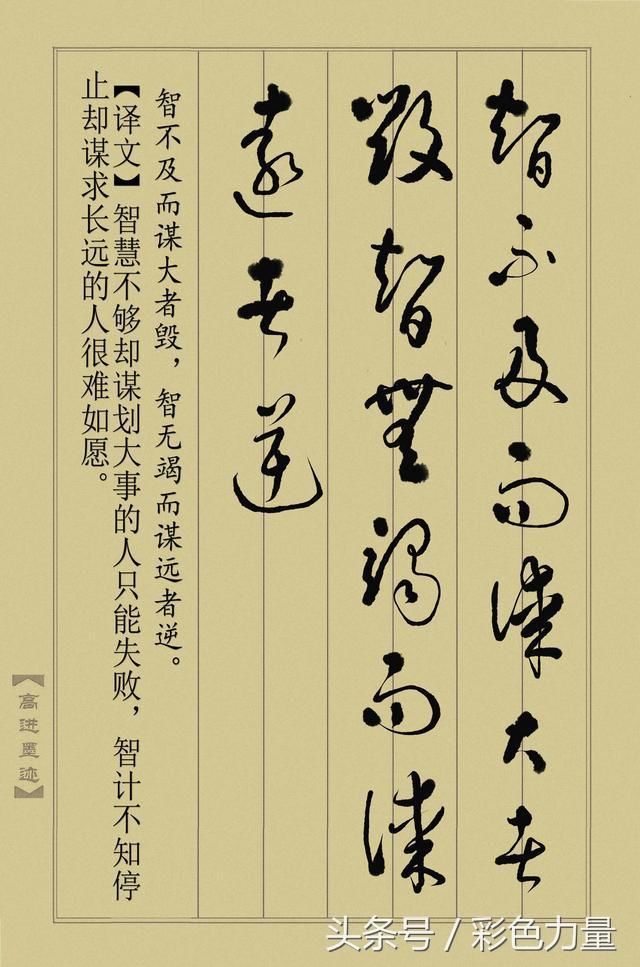 智不及而谋大者
毁智無竭而谋
遠者逆
智不及而谋大者毁，智无竭而谋远者逆。
【译文】智慧不够却谋划大事的人只能失败，智计不知停
止却谋求长远的人很难如愿。
【高进墨迹】
头条号／彩色力量